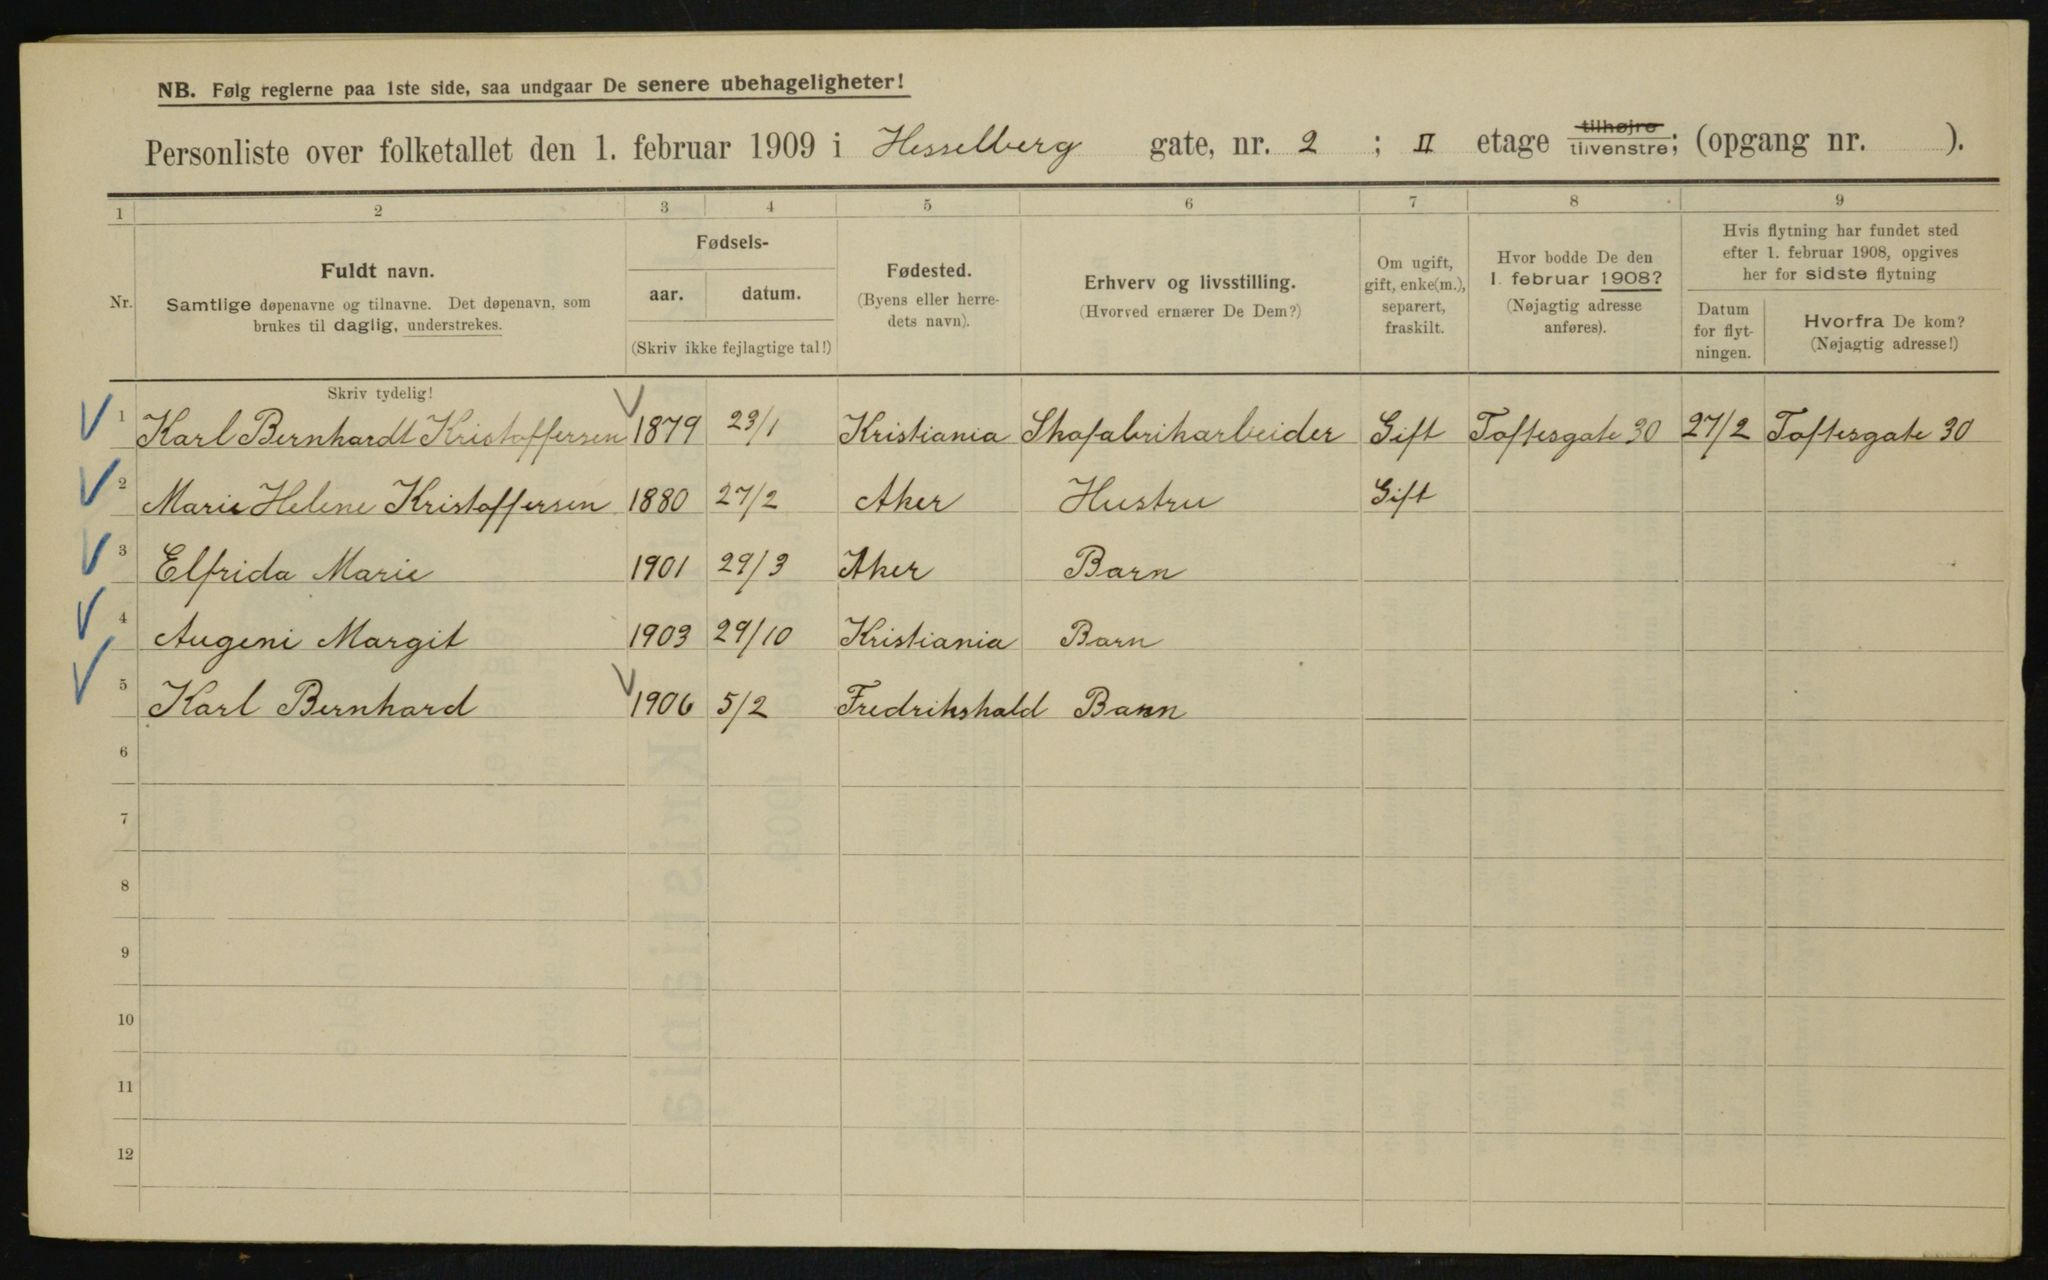 NB. Følg reglerne paa 1ste side, saa undgaar De senere ubehageligheter!
Personliste over folketallet den 1. februar 1909 i Hesselberg gate, nr. 2 ; II etage tilhøjre tilvenstre; (opgang nr. ).
1 2 3 4 5 6 7 8 9
Nr.
Fuldt navn.
Samtlige døpenavne og tilnavne. Det døpenavn, som
brukes til daglig, understrekes.
Fødsels-
aar. datum.
(Skriv ikke fejlagtige tal!)
Fødested.
(Byens eller herre-
dets navn).
Erhverv og livsstilling.
(Hvorved ernærer De Dem?)
Om ugift,
gift, enke(m.),
separert,
fraskilt.
Hvor bodde De den
1. februar 1908?
(Nøjagtig adresse
anføres).
Hvis flytning har fundet sted
efter 1. februar 1908, opgives
her for sidste flytning
Datum
for flyt-
ningen.
Hvorfra De kom?
(Nøjagtig adresse!)
Skriv tydelig!
1 Karl Bernhardt Kristoffersen 1879 23/1 Kristiania Skofabrikarbeider Gift Toftesgate 30 27/2 Toftesgate 30
2 Marie Helene Kristoffersen 1880 27/2 Aker Hustru Gift
3 Elfrida Marie 1901 29/3 Aker Barn
4 Augeni Margit 1903 29/10 Kristiania Barn
5 Karl Bernhard 1906 5/2 Fredrikshald Barn
6
7
8
9
10
11
12